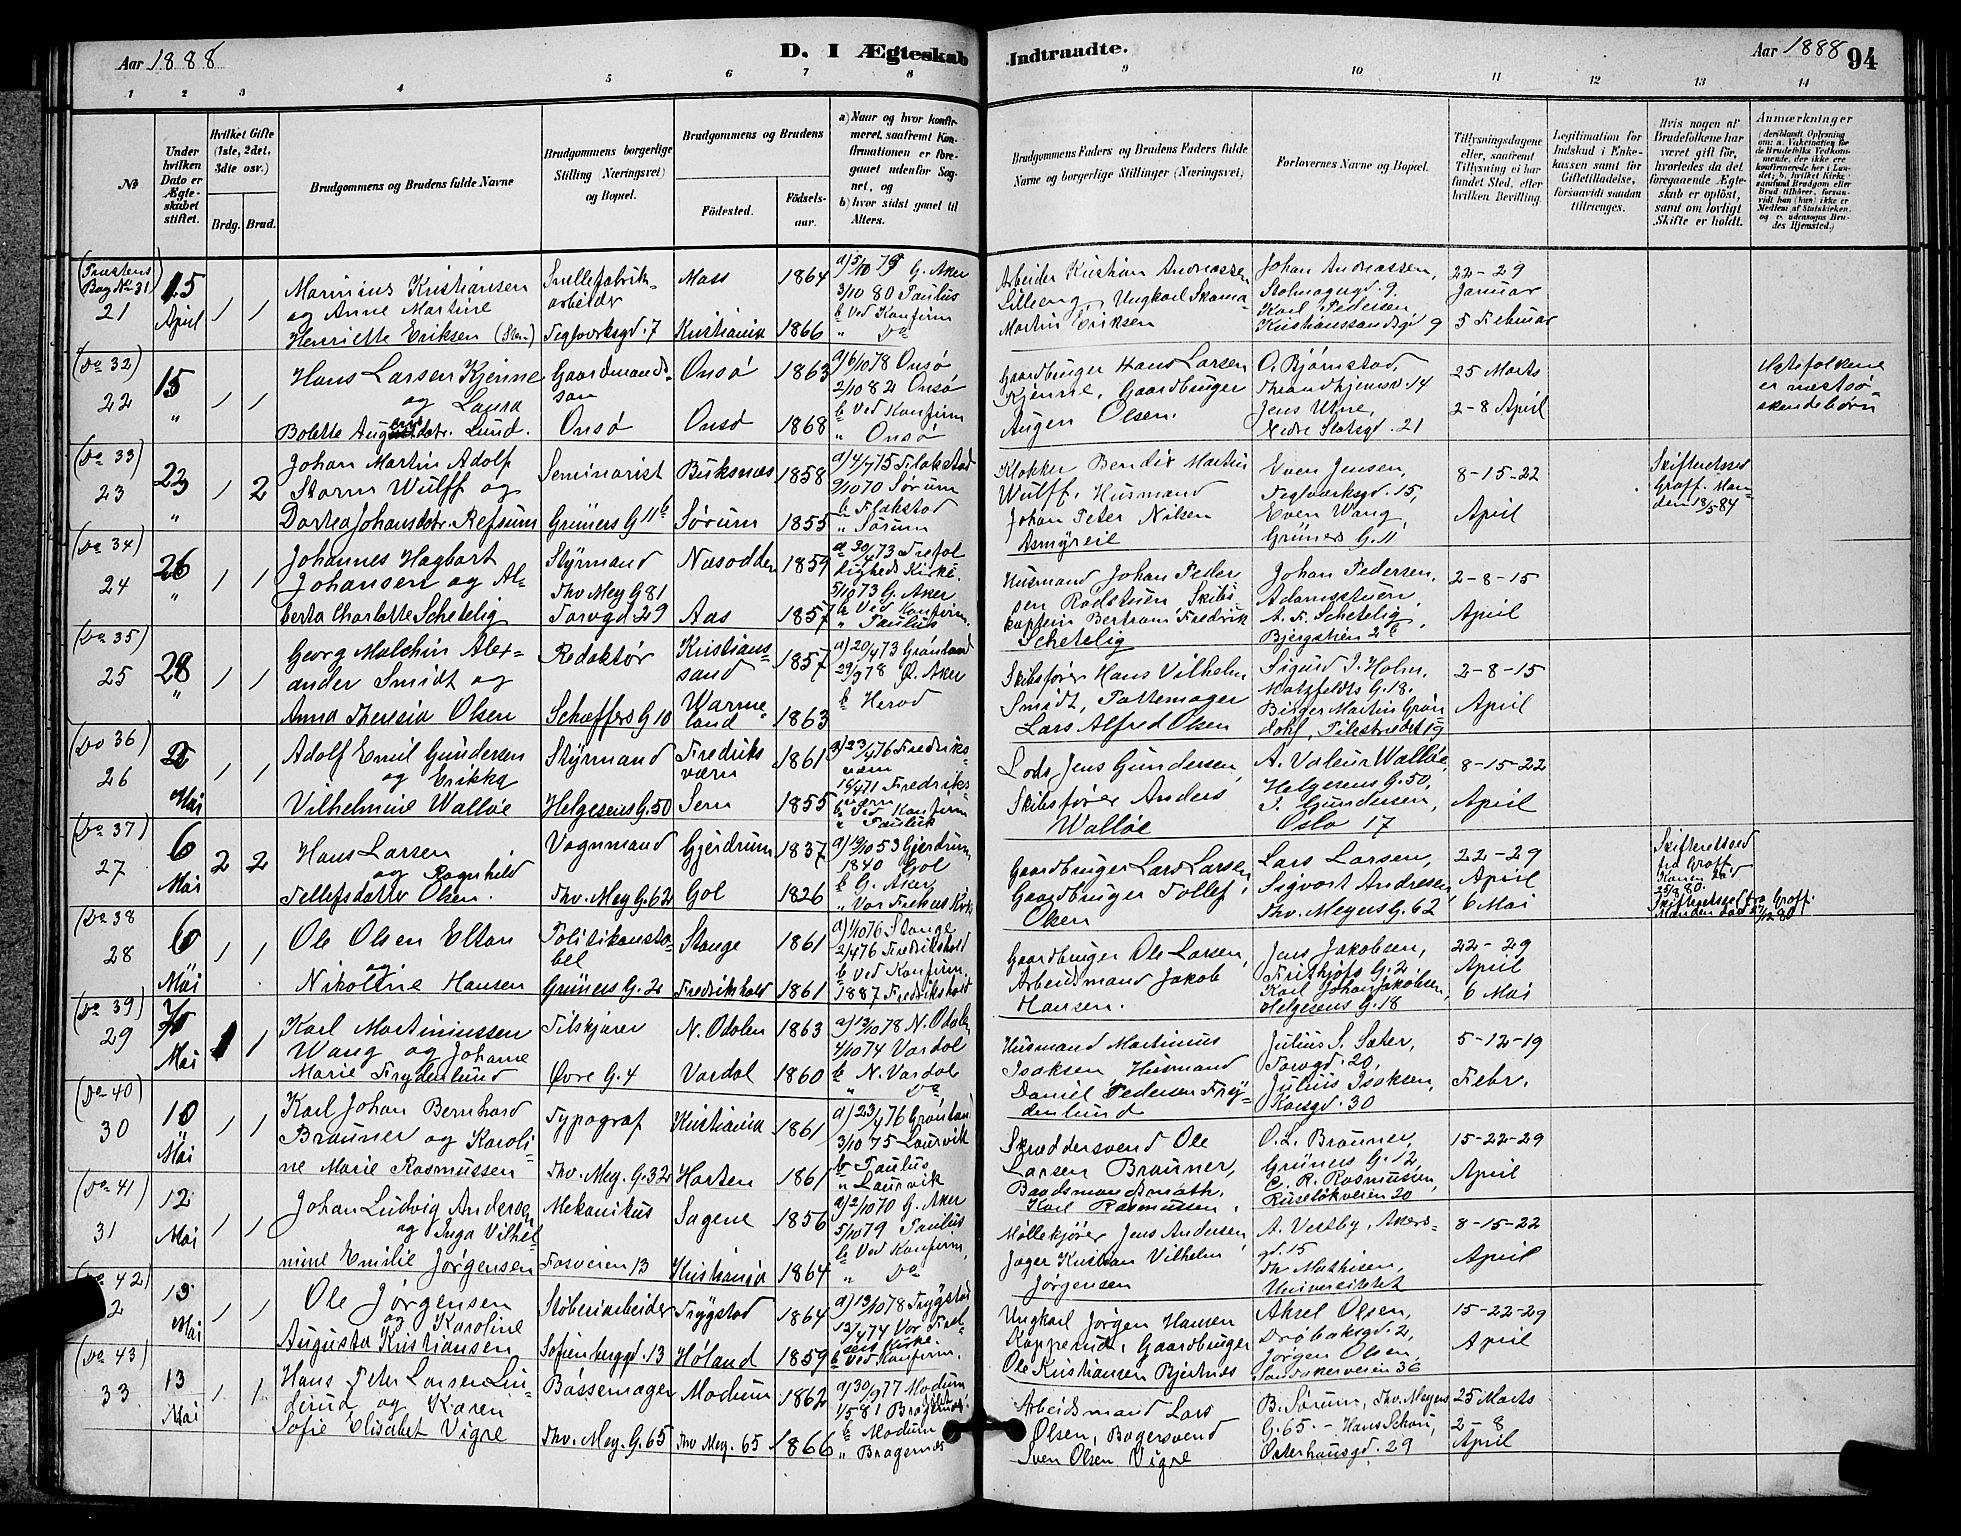 Aar 1888
D. I Ægteskab
Indtraadte.
Aar 1888 94
1 2 3 4 5 6 7 8 9 10 11 12 13 14
№
Under hvilken Dato er Ægteskabet stiftet.
Hvilket Gifte (1ste, 2det, 3die osv.)
Brdg. Brud.
Brudgommens og Brudens fulde Navne
Brudgommens borgerlige Stilling (Næringsvei) og Bopæl.
Brudgommens og Brudens
Födested.
Födselsaar.
a) Naar og hvor konfirmeret, saafremt Konfirmationen er foregaaet udenfor Sognet, og
b) hvor sidst gaaet til Alters.
Brudgommens Faders og Brudens Faders fulde Navne og borgerlige Stillinger (Næringsvei)
Forlovernes Navne og Bopæl.
Tillysningsdagene eller, saafremt Tillysning ei har fundet Sted, efter hvilken Bevilling.
Legitimation for Indskud i Enkekassen samt for Giftetilladelse, forsaavidt saadan tiltrænges.
Hvis nogen af Brudefolkene har været gift för, hvorledes da det foregaaende Ægteskab er oplöst, samt om lovligt Skifte er holdt.
Anmærkninger
(Præstens Bog No 31)
21
15 April
1 1
Marinius Kristiansen
og Anne Martine
Henriette Eriksen
Snellefabrik-
arbeider
Teglverksgd. 7
Moss 1864
Kristiania 1866
a) 5/10 79 G. Aker
3/10 80 Paulus
b Ved Konfirm
" Do
Arbeider Kristian Andreassen
Lilleeng, Ungkarl Skoma
Martin Eriksen
Johan Andreassen,
Stolmagergd. 9.
Karl Pedersen
Kristianssandsgd 9
22-29
Januar
5 Februar
(Do 32)
22
15 "
1 1
Hans Larsen Kjenne
og Laura
Bolette Augensdatr. Lund.
Gaardmands-
søn
Onsø
Onsø 1863
Onsø 1868
a) 6/10 78 Onsø
2/10 82 Onsø
b Ved Konfirm
" Onsø
Gaardbruger Hans Larsen
Kjenne, Gaardbruger
Augen Olsen.
O. Bjørnstad,
Throndhjemsv. 14
Jens Utne,
Nedre Slotsgd. 21
25 Marts
2-8 April
Ægtefolkene
er næstsø
skendebørn
(Do 33)
23
23 "
1 2
Johan Martin Adolf
Storm Wulff og
Dortea Johansdatr. Refsum
Seminarist
Grüners G 11 b
Buksnæs 1858
Sørum 1855
a) 4/7 75 Flakstad
9/10 70 Sørum
b Flakstad
" Sørum
Klokker Bendix Martin
Wulff, Husmand
Johan Peter Nilsen
Asmyreie
Even Jensen,
Teglverksgd. 15,
Even Wang,
Grüners G. 11
8-15-22
April
Skifteretssed
Graff. Man-
den d 18/5 84
(Do 34)
24
26 "
1 1
Johannes Hagbart
Johansen og Al-
berta Charlotte Schetelig
Styrmand
Thv. Mey G 81
Torvgd 29
Næsodden 1859
Aas 1857
a 30/4 73 Trefol
digheds Kirke.
5/10 73 G. Aker
b Ved Konfirm.
" Paulus
Husmand Johan Peder
sen Rodstuen, Skibs
kaptein Bertram Fredrik
Schetelig
Johan Pedersen,
Adamstuen
A. F. Schetelig,
Bjergstien 2 b
2-8-15
April
(Do 35)
25
28 "
1 1
Georg Malchin Alex-
ander Smidt og
Anna Theresia Olsen
Redaktør
Schæffers G 10
Kristians-
sand 1857
Warme-
land 1863
a) 20/4 73 Grønland
29/9 78 Ø. Aker
b Herad
Skibsfører Hans Vilhelm
Smidt, Pottemager
Lars Alfred Olsen
Sigurd I. Holm,
Matzfeldts G. 18.
Birger Martin Grøn
dahl, Pilestrædet 19
2-8-15
April
(Do 36)
26
2 Mai
1 1
Adolf Emil Gundersen
og Erikka
Vilhelmine Walløe
Styrmand
Helgesens G. 50
Fredriks
værn 1861
Sem 1855
a) 23/4 76 Fredriks-
værn
16/4 71 Fredriks-
værn
b Ved Konfirm
" Paulus
Lods Jens Gundersen,
Skibsfører Anders
Walløe
A. Valeur Walløe,
Helgesens G. 50,
I. Gundersen,
Oslo 17
8-15-22
April
(Do 37)
27
6 Mai
2 2
Hans Larsen
og Ragnhild
Tellefsdatter Olsen.
Vognmand
Thv. Mey G. 62
Gjerdrum 1837
Gol 1826
1840 Gol
b G. Aker
" Vor Frelsers Kirke
Gaardbruger Lars Larsen,
Gaardbruger Tollef
Olsen
Lars Larsen,
Sigvart Andresen,
Thv. Meyers G. 62
22-29
April
6 Mai
Skifteretssed
fra Graff
Konen død
25/3 80.
Skifteretssed fra Graff.
Manden død 27/12 80
(Do 38
28
6 Mai
1 1
Ole Olsen Elton
og
Nikoline Hansen
Politikonsta-
bel
Grüners G. 2
Stange 1861
Fredrikshald 1861
a) 1/10 76 Stange
2/4 76 Fredrikshald
b Ved Konfirm.
1887 Fredrikshald
Gaardbruger Ole Larsen,
Arbeidsmand Jakob
Hansen.
Jens Jakobsen,
Frithjofs G. 2
Karl Johan Jakobsen,
Helgesens G. 18
22-29
April
6 Mai
(Do 39)
29
Mai
1 1
Karl Martiniussen
Wang og Johanne
Marie Frydenlund
Filskjærer
Øvre G. 4
N. Odalen 1863
Vardal 1860
a) 13/10 78 N. Odalen
4/10 74 Vardal
b N. Vardal
" Do
Husmand Martinius
Isaksen Husmand
Daniel Pedersen Fry-
denlund
Julius S. Sæter,
Torvgd. 20,
Julius Isaksen,
Korsgd. 30
5-12-19
Febr.
(Do 40)
30
10 Mai
1 1
Karl Johan Bernhard
Brauner og Karoli-
ne Marie Rasmussen
Typograf
Thv. Mey. G. 32
Kristiania 1861
Horten 1861
a) 23/4 76 Grønland
3/10 75 Laurvik
b Paulus
" Laurvik
Skræddersvend Ole
Larsen Brauner,
Baadsmandsmath.
Karl Rasmussen,
O. L. Brauner,
Grüners G. 12,
C. R. Rasmussen,
Ruseløkveien 20
15-22-29
April
(Do 41)
31
12 Mai
1 1
Johan Ludvig Andersen
og Inga Vilhel-
mine Emilie Jørgensen
Mekanikus
Fosveien 13
Sagene 1856
Kristiania 1864
a) 2/10 70 G. Aker
5/10 79 Paulus
b Ved Konfirm,
" Do
Møllekjører Jens Andersen,
Jæger Kristian Vilhelm
Jørgensen
A. Vestby, Akers-
gd. 15
Th. Mathisen,
Universitetet
8-15-22
April
(Do 42)
2
13 Mai
1 1
Ole Jørgensen
og Karoline
Augusta Kristiansen
Støberiarbeider
Sofienberggd. 13
Trygstad 1864
Høland 1859
a) 13/10 78 Trygstad
12/4 74 Vor Frel-
sers Kirke.
b Ved Konfirm.
Ungkarl Jørgen Hansen
Kopperud, Gaardbruger
Ole Kristiansen Bjertnes
Aksel Olsen,
Drøbaksgd. 2,
Jørgen Olsen,
Sandakerveien 36
15-22-29
April
(Do 43)
33
13 Mai
1 1
Hans Peter Larsen Lin-
derud og Karen
Sofie Elisabet Vigre
Bøssemager
Thv. Mey. G. 65
Modum 1862
Thv Mey. 65 1866
a) 30/9 77 Modum
1/5 81 Bragernæs
b Modum
" Bragernæs
Arbeidsmand Lars
Olsen, Bagersvend
Sven Olsen Vigre
B. Sørum, Thv. Meyers
G. 65. - Hans Schou,
Osterhausgd. 29
25 Marts
2-8
April